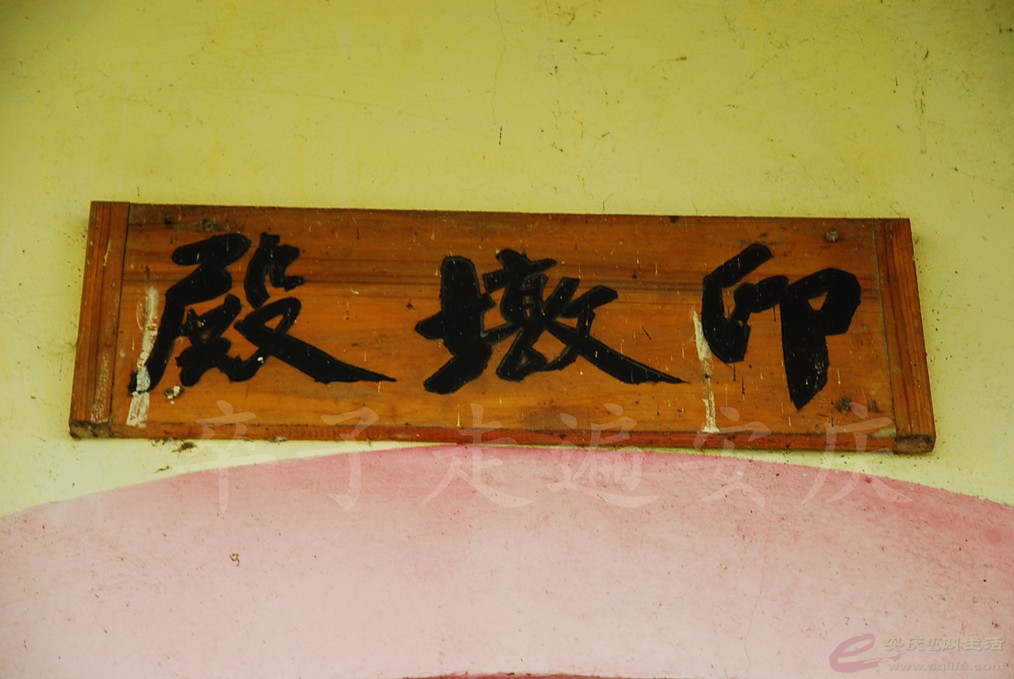 印墩殿
卒子走遍安庆
安庆E网生活
www.aqlife.com